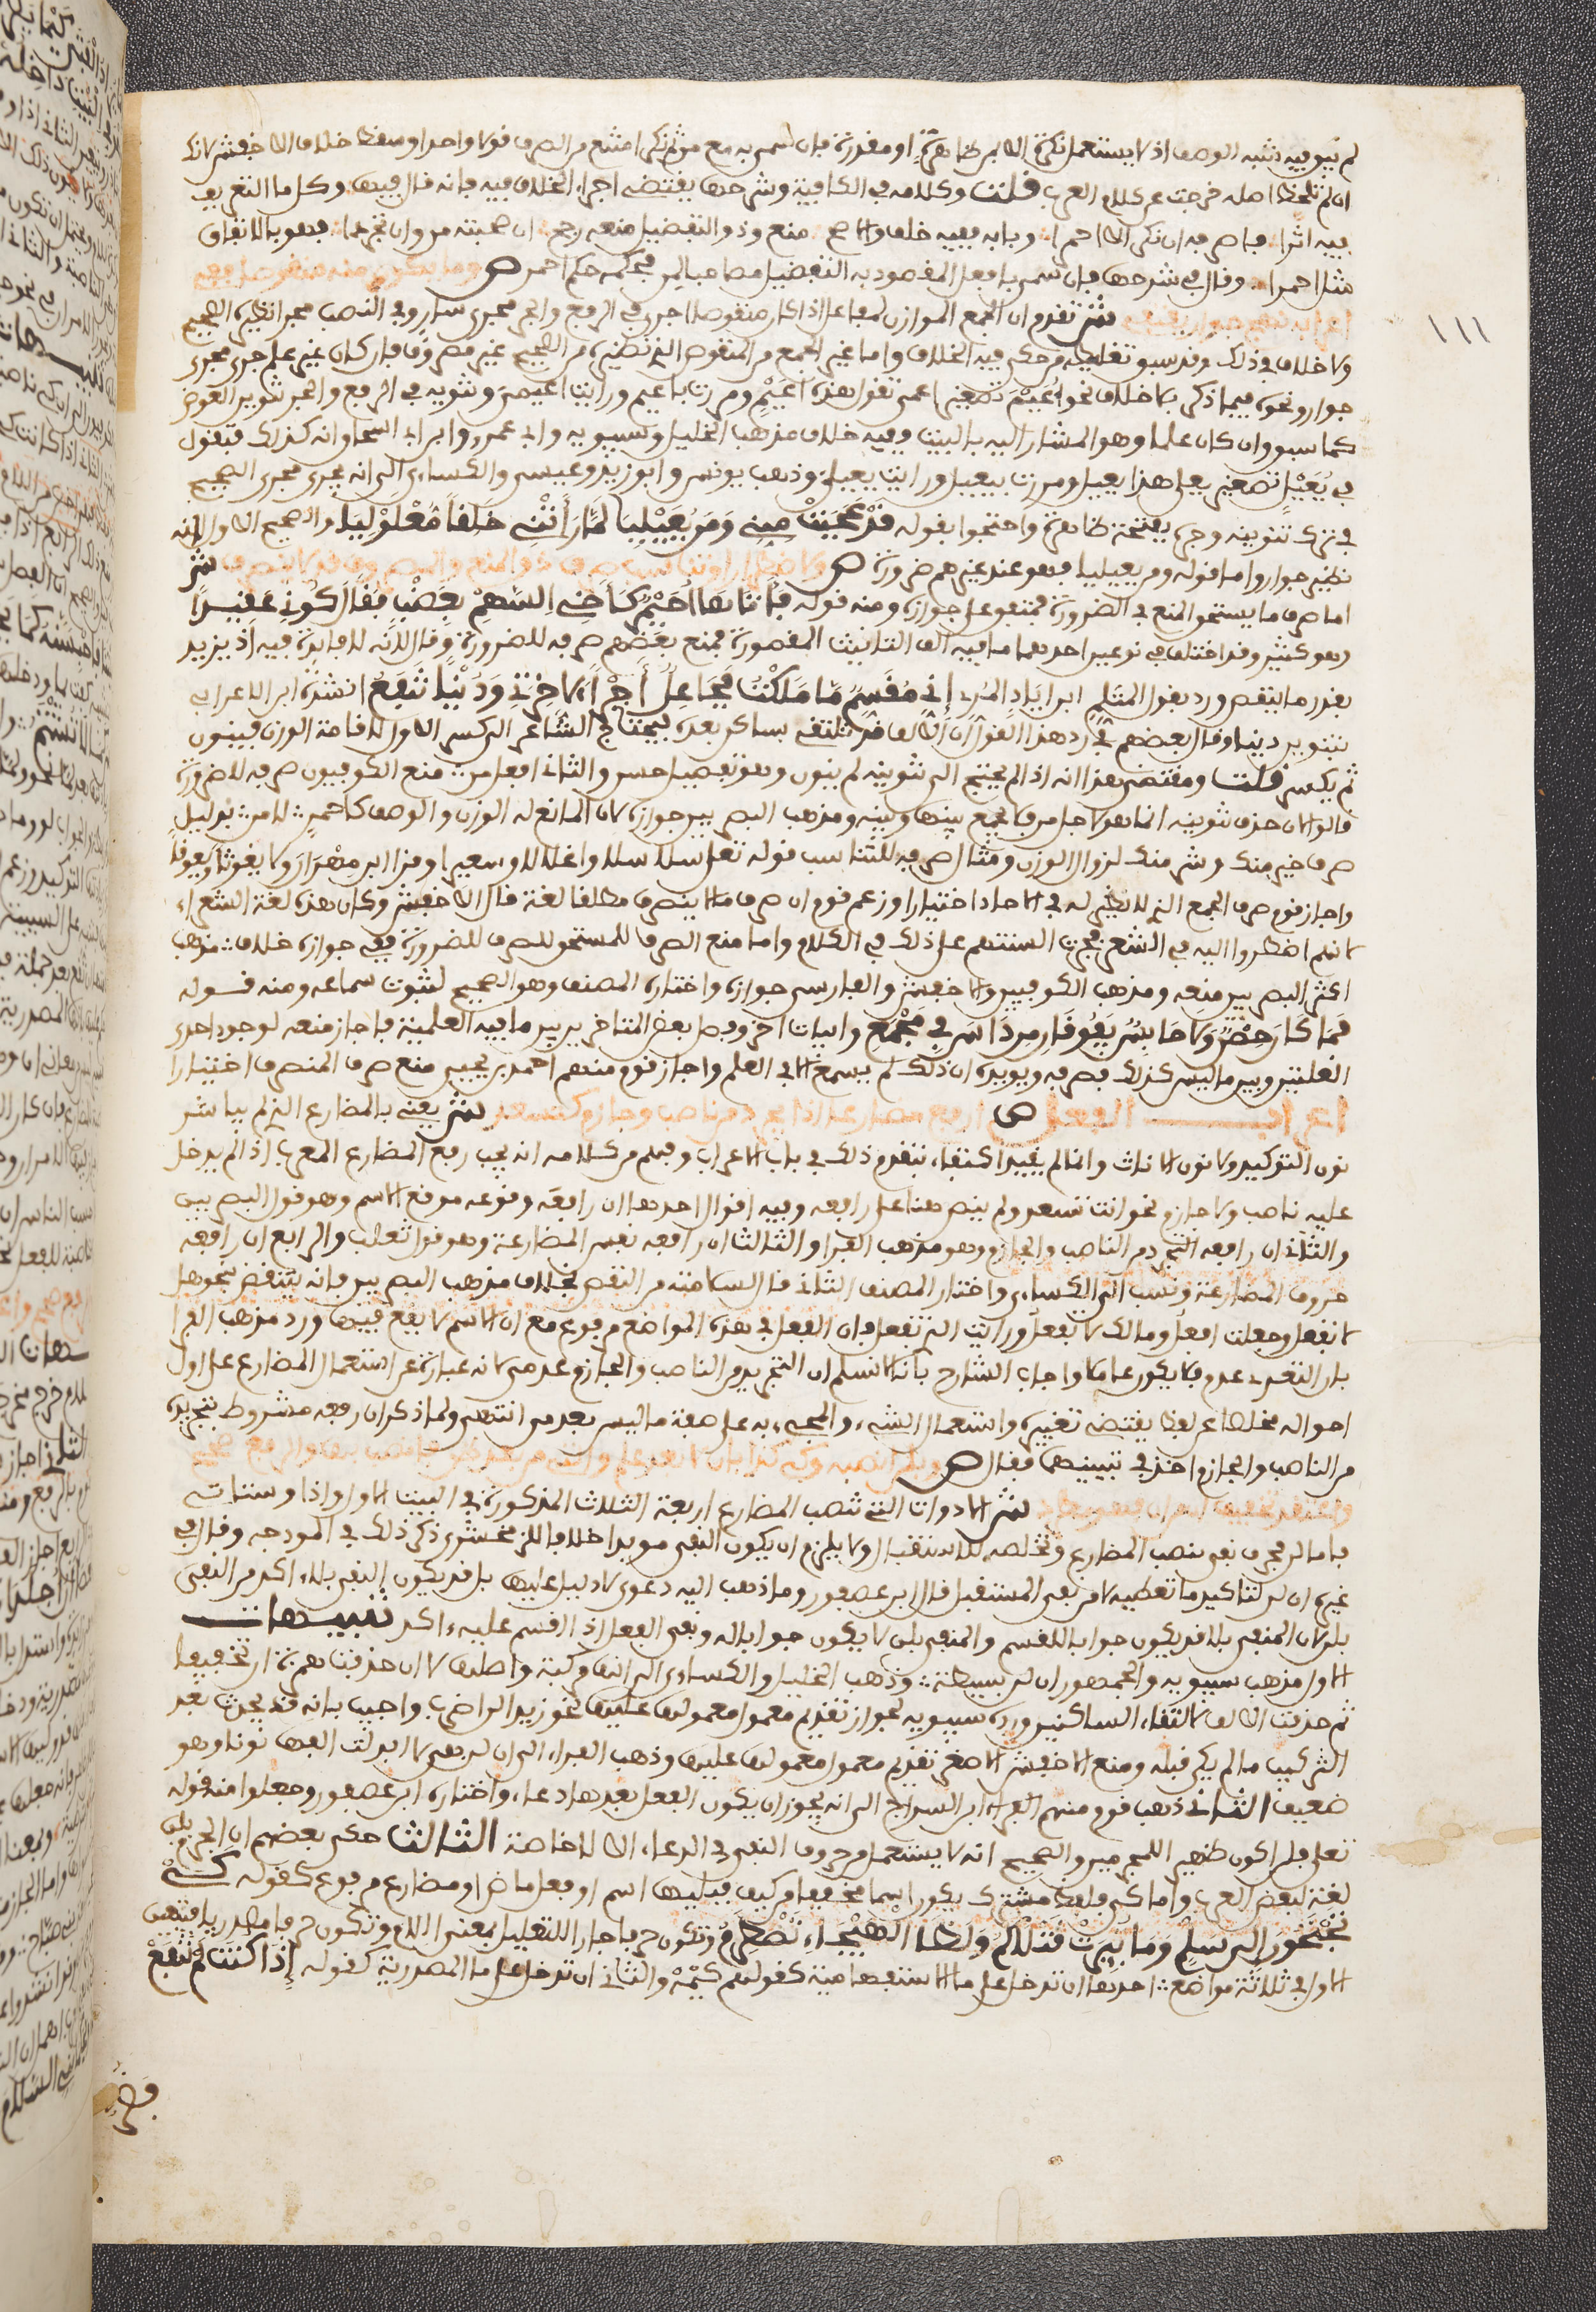 لم يبق فيه شبه الوصف اذ لا يستعمل نكرة الا بمن ظاهرة او مقدرة فان سمي به مع من ثم نكر امتنع من الصرف قولا واحدا
ان لم تلحظ اصله خرجت عن كلام العرب قلت وكلامه في الكافية وشرحها يقتضي اجراء الخلاف فيه فانه قال فيها وكل ما التعريف
فيه اثرا فاصرفه ان نكر الا احمرا وبابه ففيه خلف واضح منع وذو التفضيل منعه رجح ان صحبته من وان تجردا فهو بالاتفاق
مثل احمرا وقال في شرحها فان سمي بافعل المقصود به التفضيل مصاحبا لمن فحكمه حكم احمر ص وما يكون منه منقوصا ففي
اعرابه نهج جوار يقتفي ش تقدم ان الجمع الموازن لمفاعل اذا كان منقوصا اجري في الرفع والجر مجرى سار وفي النصب مجرى نظيره الصحيح
ولا خلاف في ذلك وقد سبق تغليط من حكى فيه الخلاف واما غير الجمع من المنقوص الذي نظيره من الصحيح غير مصروف فان كان غير علم جرى مجرى
جوار ونحوه فيما ذكر بلا خلاف نحو اعيم تصغير اعمى تقول هذا اعيم ومررت باعيم ورايت اعيمي وتنوينه في الرفع والجر تنوين العوض
كما سبق وان كان علما وهو المشار اليه بالبيت وفيه خلاف مذهب الخليل وسيبويه وابي عمرو وابن ابي اسحاق انه كذلك فتقول
في يعيل تصغير يعلى هذا يعيل ومررت بيعيل ورايت يعيلي وذهب يونس وابو زيد وعيسى والكساءي الى انه يجرى مجرى الصحيح
في ترك تنوينه وجره بفتحة ظاهرة واحتجوا بقوله قد عجبت مني ومن يعيليا لما راتني خلقا مقلوليا والصحيح الاول لانه
نظير جوار واما قوله ومن يعيليا فهو عند غيرهم ضرورة ص ولاضطرار او تناسب صرف ذو المنع والمصروف قد لا ينصرف ش
اما صرف ما يستحق المنع في الضرورة فمتفق على جوازه ومنه قوله فاتاها احيمر كاخي السهم بعضب فقال كوني عقيرا
وهو كثير وقد اختلف في نوعين احدهما ما فيه الف التانيث المقصورة فمنع بعضهم صرفه للضرورة وقال لانه لا فايدة فيه اذ يزيد
بقدر ما ينقص ورد بقول المثلم ابن اياد المري اني مقسم ما ملكت فجاعل اجرا لاخرة ودنيا تنفع انشده ابن الاعرابي
بتنوين دنيا وقال بعضهم في رد هذا القول ان الالف قد تلتقي بساكن بعده فيحتاج الشاعر الى كسر الاول لاقامة الوزن فينون
ثم يكسر قلت ومقتضى هذا انه اذا لم يحتج الى تنوينه لم ينون وهو تفصيل حسن والثاني افعل من منع الكوفيون صرفه للضرورة
قالوا لان حذف تنوينه انما هو لاجل من فلا يجمع بينها وبينه ومذهب البصريين جوازه لان المانع له الوزن والوصف كاحمر لا من بدليل
صرف خير منك وشر منك لزوال الوزن ومثال الصرف للتناسب قوله تعلى سلاسلا واغلالا وسعيرا وقرا ابن مهران ولا يغوثا ويعوقا
واجاز قوم صرف الجمع الذي لا نظير له في الاحاد اختيارا وزعم قوم ان صرف ما لا ينصرف مطلقا لغة قال الاخفش وكان هذه لغة الشعراء
لانهم اضطروا اليه في الشعر فجرت السنتهم على ذلك في الكلام واما منع الصرف للمستحق للصرف للضرورة ففي جوازه خلاف مذهب
اكثر البصريين منعه ومذهب الكوفيين والاخفش والفارسي جوازه واختاره المصنف وهو الصحيح لثبوت سماعه ومنه قوله
فما كان حصن ولا حابس يفوقان مرداس في مجمع وابيات اخر وفصل بعض المتاخرين بين ما فيه العلمية فاجاز منعه لوجود احدى
العلتين وبين ما ليس كذلك فصرفه ويويده ان ذلك لم يسمع الا في العلم واجاز قوم منهم احمد بن يحيى منع صرف المنصرف اختيارا
اعراب الفعل ص ارفع مضارعا اذا يجرد من ناصب وجازم كتسعد ش يعني بالمضارع الذي لم يباشر
نون التوكيد ولا نون الاناث وانما لم يقيد اكتفاء بتقدم ذلك في باب الاعراب وفهم من كلامه انه يجب رفع المضارع المعرب اذا لم يدخل
عليه ناصب ولا جازم نحو انت تسعد ولم ينص هنا على رافعه وفيه اقوال احدها ان رافعه وقوعه موقع الاسم وهو قول البصريين
والثاني ان رافعه التجرد من الناصب والجازم وهو مذهب الفراء والثالث ان رافعه نفس المضارعة وهو قول ثعلب والرابع ان رافعه
حروف المضارعة ونسب الى الكساءي واختار المصنف الثاني قال لسلامته من النقض بخلاف مذهب البصريين فانه ينتقض بنحو هلا
تفعل وجعلت افعل ومالك لا تفعل ورايت الذي تفعل فان الفعل في هذه المواضع مرفوع مع ان الاسم لا يقع فيها ورد مذهب الفراء
بان التعري عدم فلا يكون عاملا واجاب الشارح بانا لا نسلم ان التجريد من الناصب والجازم عدمي لانه عبارة عن استعمال المضارع على اول
احواله مخلصا عن لفظ يقتضي تغييره واستعمال الشيء والمجيء به على صفة ما ليس بعدمي انتهى ولما ذكر ان رفعه مشروط بتجريده
من الناصب والجازم اخذ في تبيينها فقال ص وبلن انصبه وكي كذا بان لا بعد علم والتي من بعد ظن فانصب بها والرفع صحح
واعتقد تخفيفها من ان فهو مطرد ش الادوات التي تنصب المضارع اربعة الثلاث المذكورة في البيت الاول واذا وستاتي
فاما لن فحرف نفي ينصب المضارع وتخلصه للاستقبال ولا يلزم ان يكون النفي مويدا خلافا للزمخشري ذكر ذلك في انموذجه وقال في
غيره ان لن لتاكيد ما تعطيه لا من نفي المستقبل قال ابن عصفور وما ذهب اليه دعوى لا دليل عليها بل قد يكون النفي بلا اكد من النفي
بلن لان المنفي بلا قد يكون جوابا للقسم والمنفي بلن لا يكون جوابا له ونفي الفعل اذا اقسم عليه اكد تنبيهات
الاول مذهب سيبويه والجمهور ان لن بسيطة وذهب الخليل والكساءي الى انها مركبة واصلها لا ان حذفت همزة ان تخفيفا
ثم حذفت الالف لالتقاء الساكنين ورده سيبويه لجواز تقديم معمول معمولها عليها نحو زيدا لن اضرب واجيب بانه قد يحدث بعد
التركيب ما لم يكن قبله ومنع الاخفش الاصغر تقديم معمول معمولها عليها وذهب الفراء الى ان لن هي لا ابدلت الفها نونا وهو
ضعيف الثاني ذهب قوم منهم ابن السراج الى انه يجوز ان يكون الفعل بعدها دعاء واختاره ابن عصفور وجعلوا منه قوله
تعلى فلن اكون ظهيرا للمجرمين والصحيح انه لا يستعمل من حروف النفي في الدعاء الا لا خاصة الثالث حكى بعضهم ان الجزم بلن
لغة لبعض العرب واما كي فلفظ مشترك يكون اسما مخففا من كيف فيليها اسم او فعل ماض او مضارع مرفوع كقوله كي
تجنحون الى سلم وما ثئرت قتلاكم ولظى الهيجاء تضطرم وتكون حرفا جارا للتعليل بمعنى اللام وتكون حرفا مصدريا فتقع
الاولى في ثلاثة مواضع احدها ان تدخل على ما الاستفهامية كقولهم كيمه والثاني ان تدخل على ما المصدرية كقوله اذا كنت لم تنفع
فضر
١١١